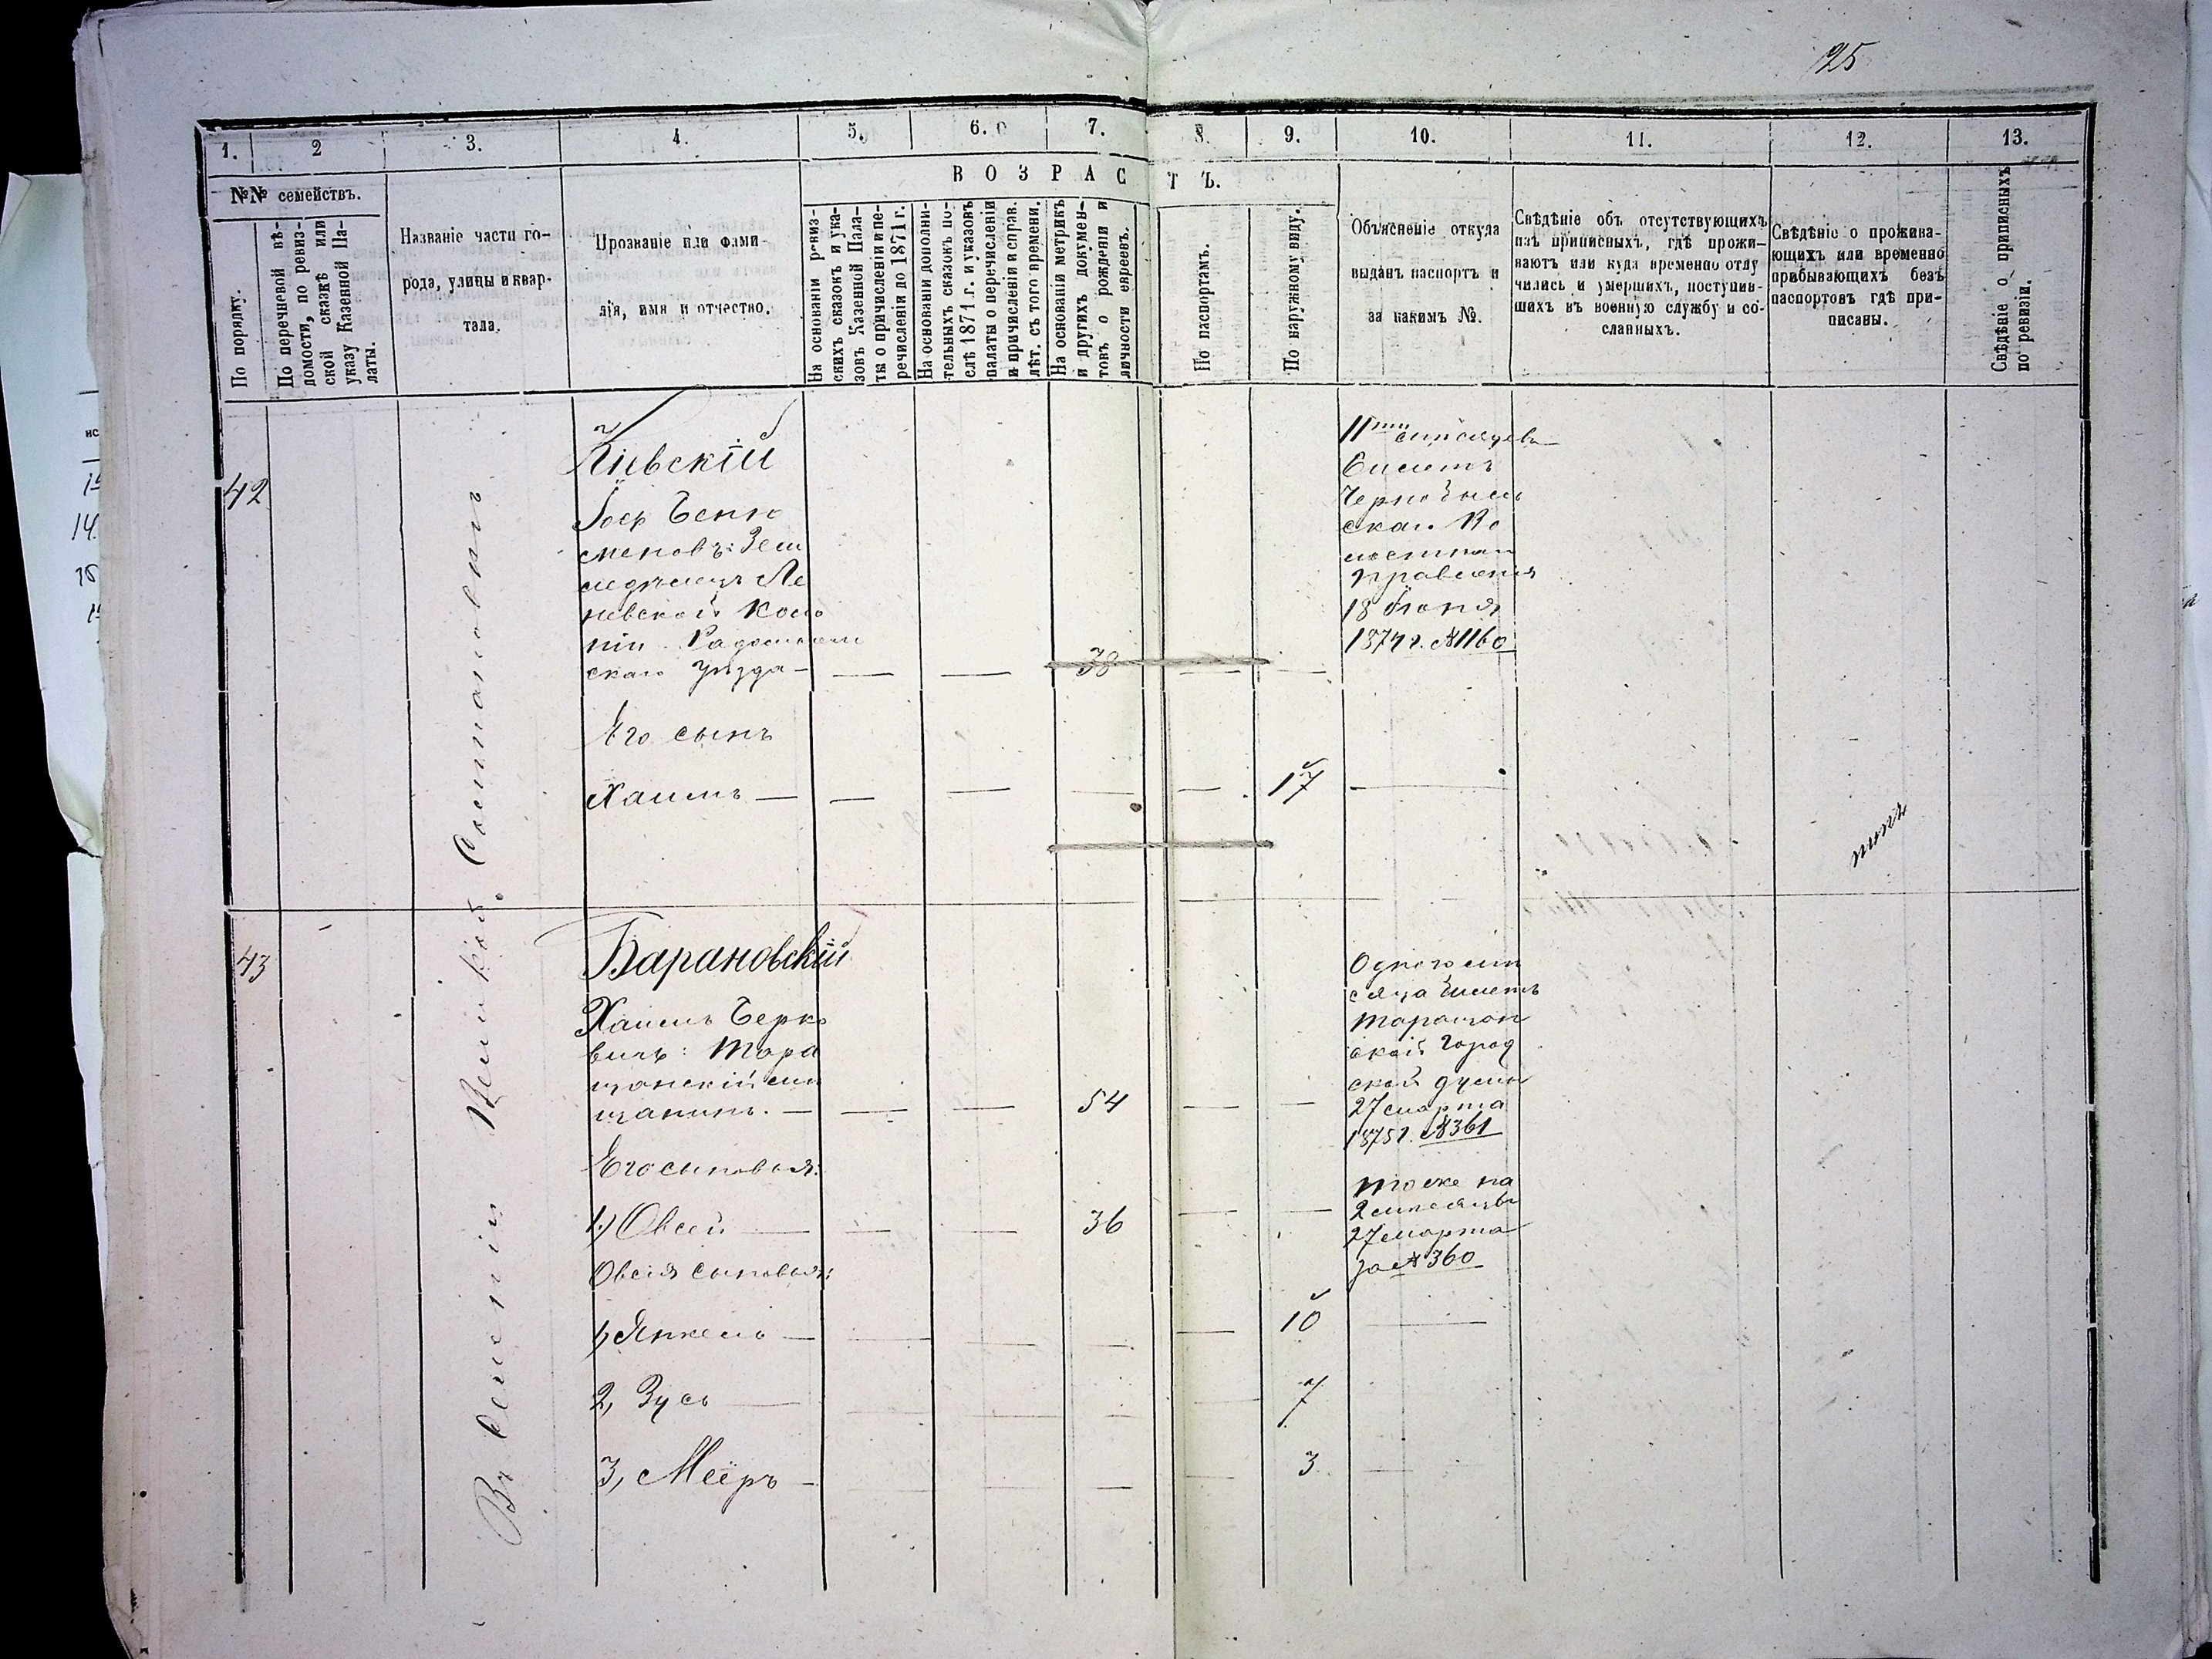 25
1. 2 3. 4. 5. 6. 7. 8. 9. 10. 11. 12. 13.
№№ семействъ.
По порядку.
По перечневой вѣ-
домости, по ревиз-
ской сказкѣ или
указу Казенной Па-
латы.
Названіе части го-
рода, улицы и квар-
тала.
Прозваніе или фами-
лія, имя и отчество.
ВОЗРАСТЪ.
На основаніи ревиз-
скихъ сказокъ и ука-
зовъ Казенной Пала-
ты о причисленіи и пе-
речисленіи до 1871 г.
На основаніи дополни-
тельныхъ сказокъ по-
слѣ 1871 г. и указовъ
палаты о перечисленіи
и причисленіи и справ.
лѣт. съ того времени.
На основаніи метрикъ
и другихъ докумен-
товъ о рожденіи и
личности евреевъ.
По паспортамъ.
По наружному виду.
Объясненіе откуда
выданъ паспортъ и
за какимъ №.
Свѣдѣніе объ отсутствующихъ
изъ приписныхъ, гдѣ прожи-
ваютъ или куда временно отлу
чились и умершихъ, поступив-
шихъ въ военную службу и со-
сланныхъ.
Свѣдѣніе о прожива-
ющихъ или временно
прибывающихъ безъ
паспортовъ гдѣ при-
писаны.
Свѣдѣніе о приписныхъ
по ревизіи.
42
Кіевскій
Іось Бенц
меновъ: Зем
ледѣлецъ Ле
невской Коло
ніи Радомысль
скаго Уѣзда —
38
11ти мѣсячн
билетъ
Чернобыль
скаго Во
лостнаго
Правленія
18 Іюня
1874 г. №1160
Его сынъ
Хаимъ — 17
43
Барановскій
Хаимъ Берко
вичъ: Тара
щанскій мѣ
щанинъ. — 54
Одного мѣ
сяца билетъ
Таращан
ской Город
ской думы
27 марта
1875 г. №361
Его сыновья:
1,) Овсей — 36
тоже на
2 мѣсяца
27 марта
за №360
Овсія сыновья:
1, Янкель — 10
2, Зусь — 7
3, Меёръ — 3